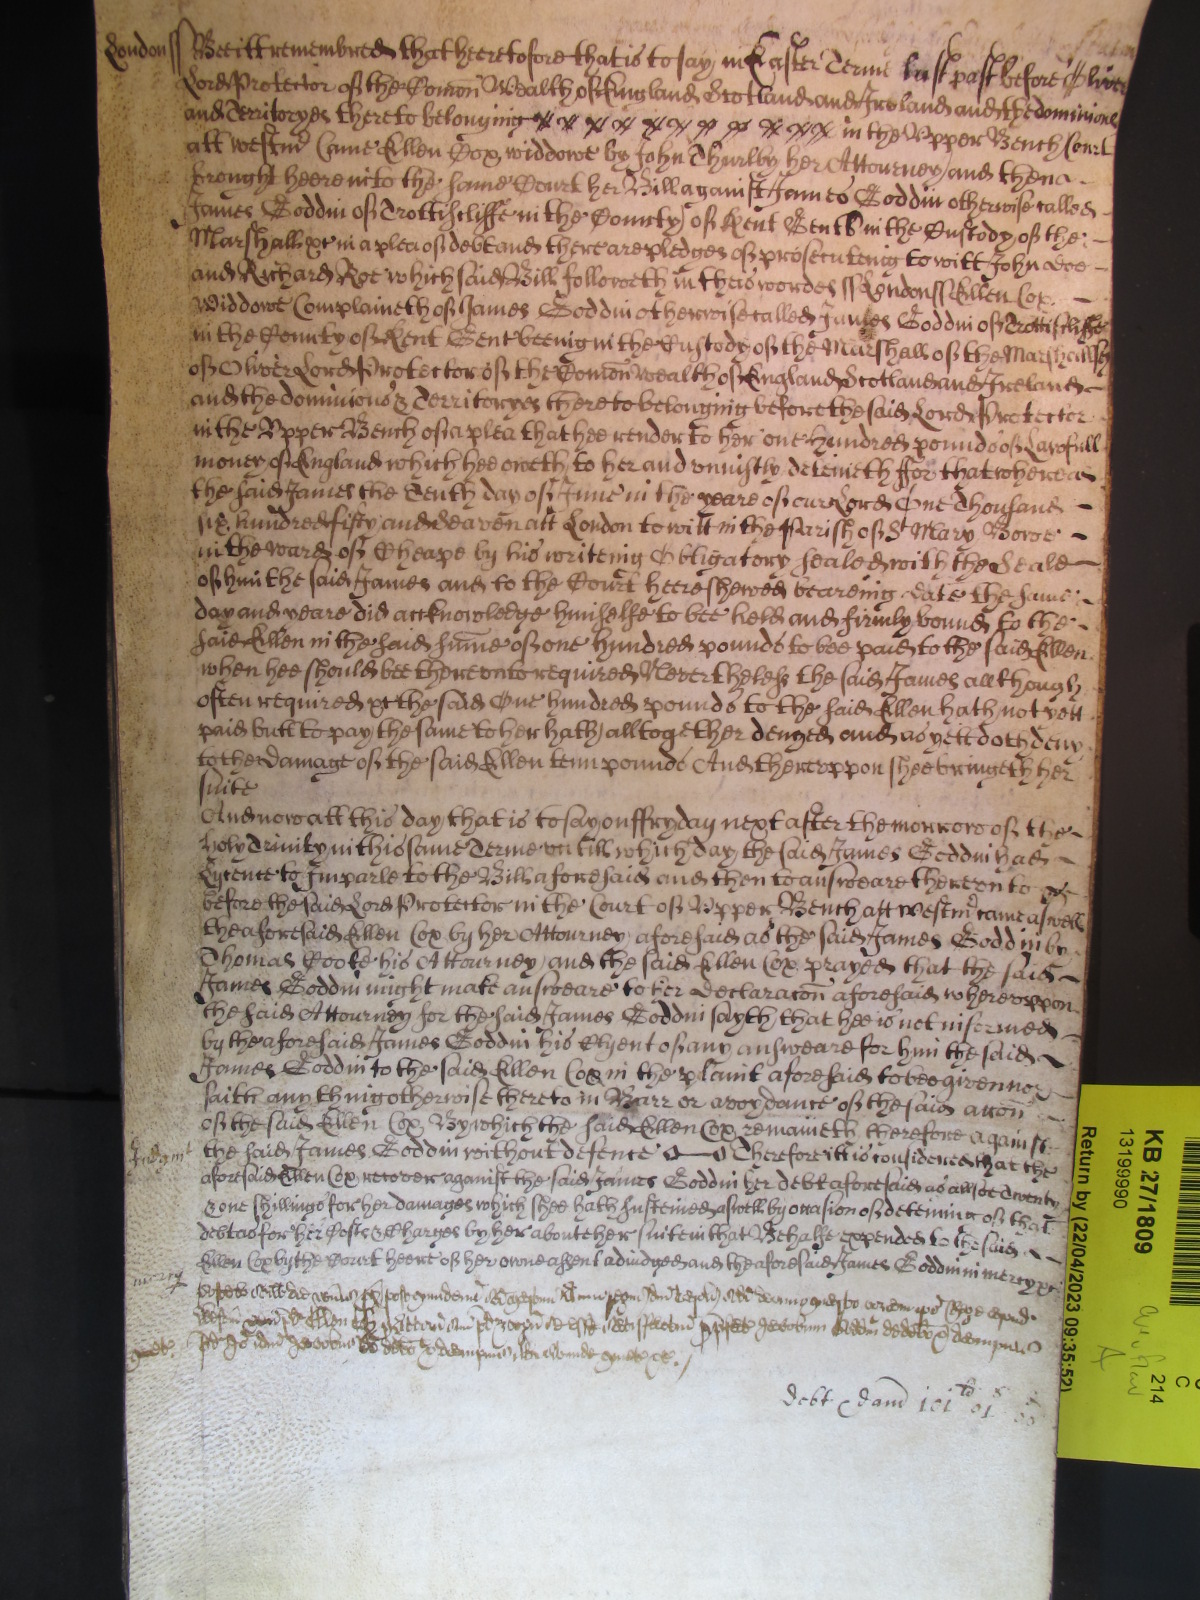 London ss Bee itt remembred that heeretofore that is to say in Easter Terme last past before Oliver
Lord Protector of the Comon Wealth of England Scotland and Ireland and the dominions
and Territoryes thereto belonging in the Upper Bench Court
att Westmr Came Ellen Cox widdowe by John Thurlby her Attourney and then a
brought heere into the same Court her Bill against James Goddin otherwise called
James Goddin of Trottiscliffe in the County of Kent Gent in the Custody of the
Marshall &c in a plea of debt and there are pledges of prosecuteing to witt John doe
and Richard Roe which said Bill followeth in theis wordes ss London ss Ellen Cox
widdowe Complaineth of James Goddin otherwise called James Goddin of Trottiscliffe
in the County of Kent Gent beeing in the Custody of the Marshall of the Marshallsy
of Oliver Lord Protector of the Comon wealth of England Scotland and Ireland
and the dominions & Territoryes thereto belonging before the said Lord Protector
in the Upper Bench of a plea that hee render to her one hundred pounds of Lawfull
money of England which hee oweth to her and uniustly deteineth ffor that whereas
the said James the Tenth day of June in the yeare of our Lord One Thousand
six hundred fifty and Seaven att London to witt in the Parish of St Mary Bowe
in the ward of Cheape by his writeing Obligatory sealed with the Seale
of him the said James and to the Court heere shewed beareing date the same
day and yeare did acknowledge himselfe to bee held and firmly bound to the
said Ellen in the said sume of one hundred pounds to bee paid to the said Ellen
when hee should bee thereunto required Nevertheless the said James allthough
often required &c the said One hundred pounds to the said Ellen hath not yett
paid butt to pay the same to her hath alltogether denyed and as yett doth deny
to the Damage of the said Ellen tenn pounds And thereuppon shee bringeth her
suite
And now att this day that is to say on ffryday next after the morrow of the
holy Trinity in this same Terme untill which day the said James Goddin had
Lycence to Imparle to the Bill aforesaid and then to answeare thereunto &c
before the said Lord Protector in the Court of Upper Bench att Westmr came aswell
the aforesaid Ellen Cox by her Attourney aforesaid as the said James Goddin by
Thomas Coote his Attourney and the said Ellen Cox prayed that the said
James Goddin might make answeare to her Declaracon aforesaid whereuppon
the said Attourney for the said James Goddin sayth that hee is not informed
by the aforesaid James Goddin his Clyent of any answeare for him the said
James Goddin to the said Ellen Cox in the plaint aforesaid to bee given nor
saith any thing otherwise thereto in Barr or avoydance of the said accon
of the said Ellen Cox By which the said Ellen Cox remaineth therefore against
Judgmt the said James Goddin without defence Therefore itt is considered that the
aforesaid Ellen Cox recover against the said James Goddin her debt aforesaid as allsoe Twenty
& one shillings for her damages which shee hath susteined aswell by occasion of deteining of that
debt as for her Costs & Charges by her about her suite in that Behalfe expended to the said
Ellen Cox by the Court heere of her owne assent adiudged and the aforesaid James Goddin in mercy &c
mercy
debt & dam 101 li 01 s
KB 27/1809
13199990
Return by (22/04/2023 09:35:52)
214
C
A